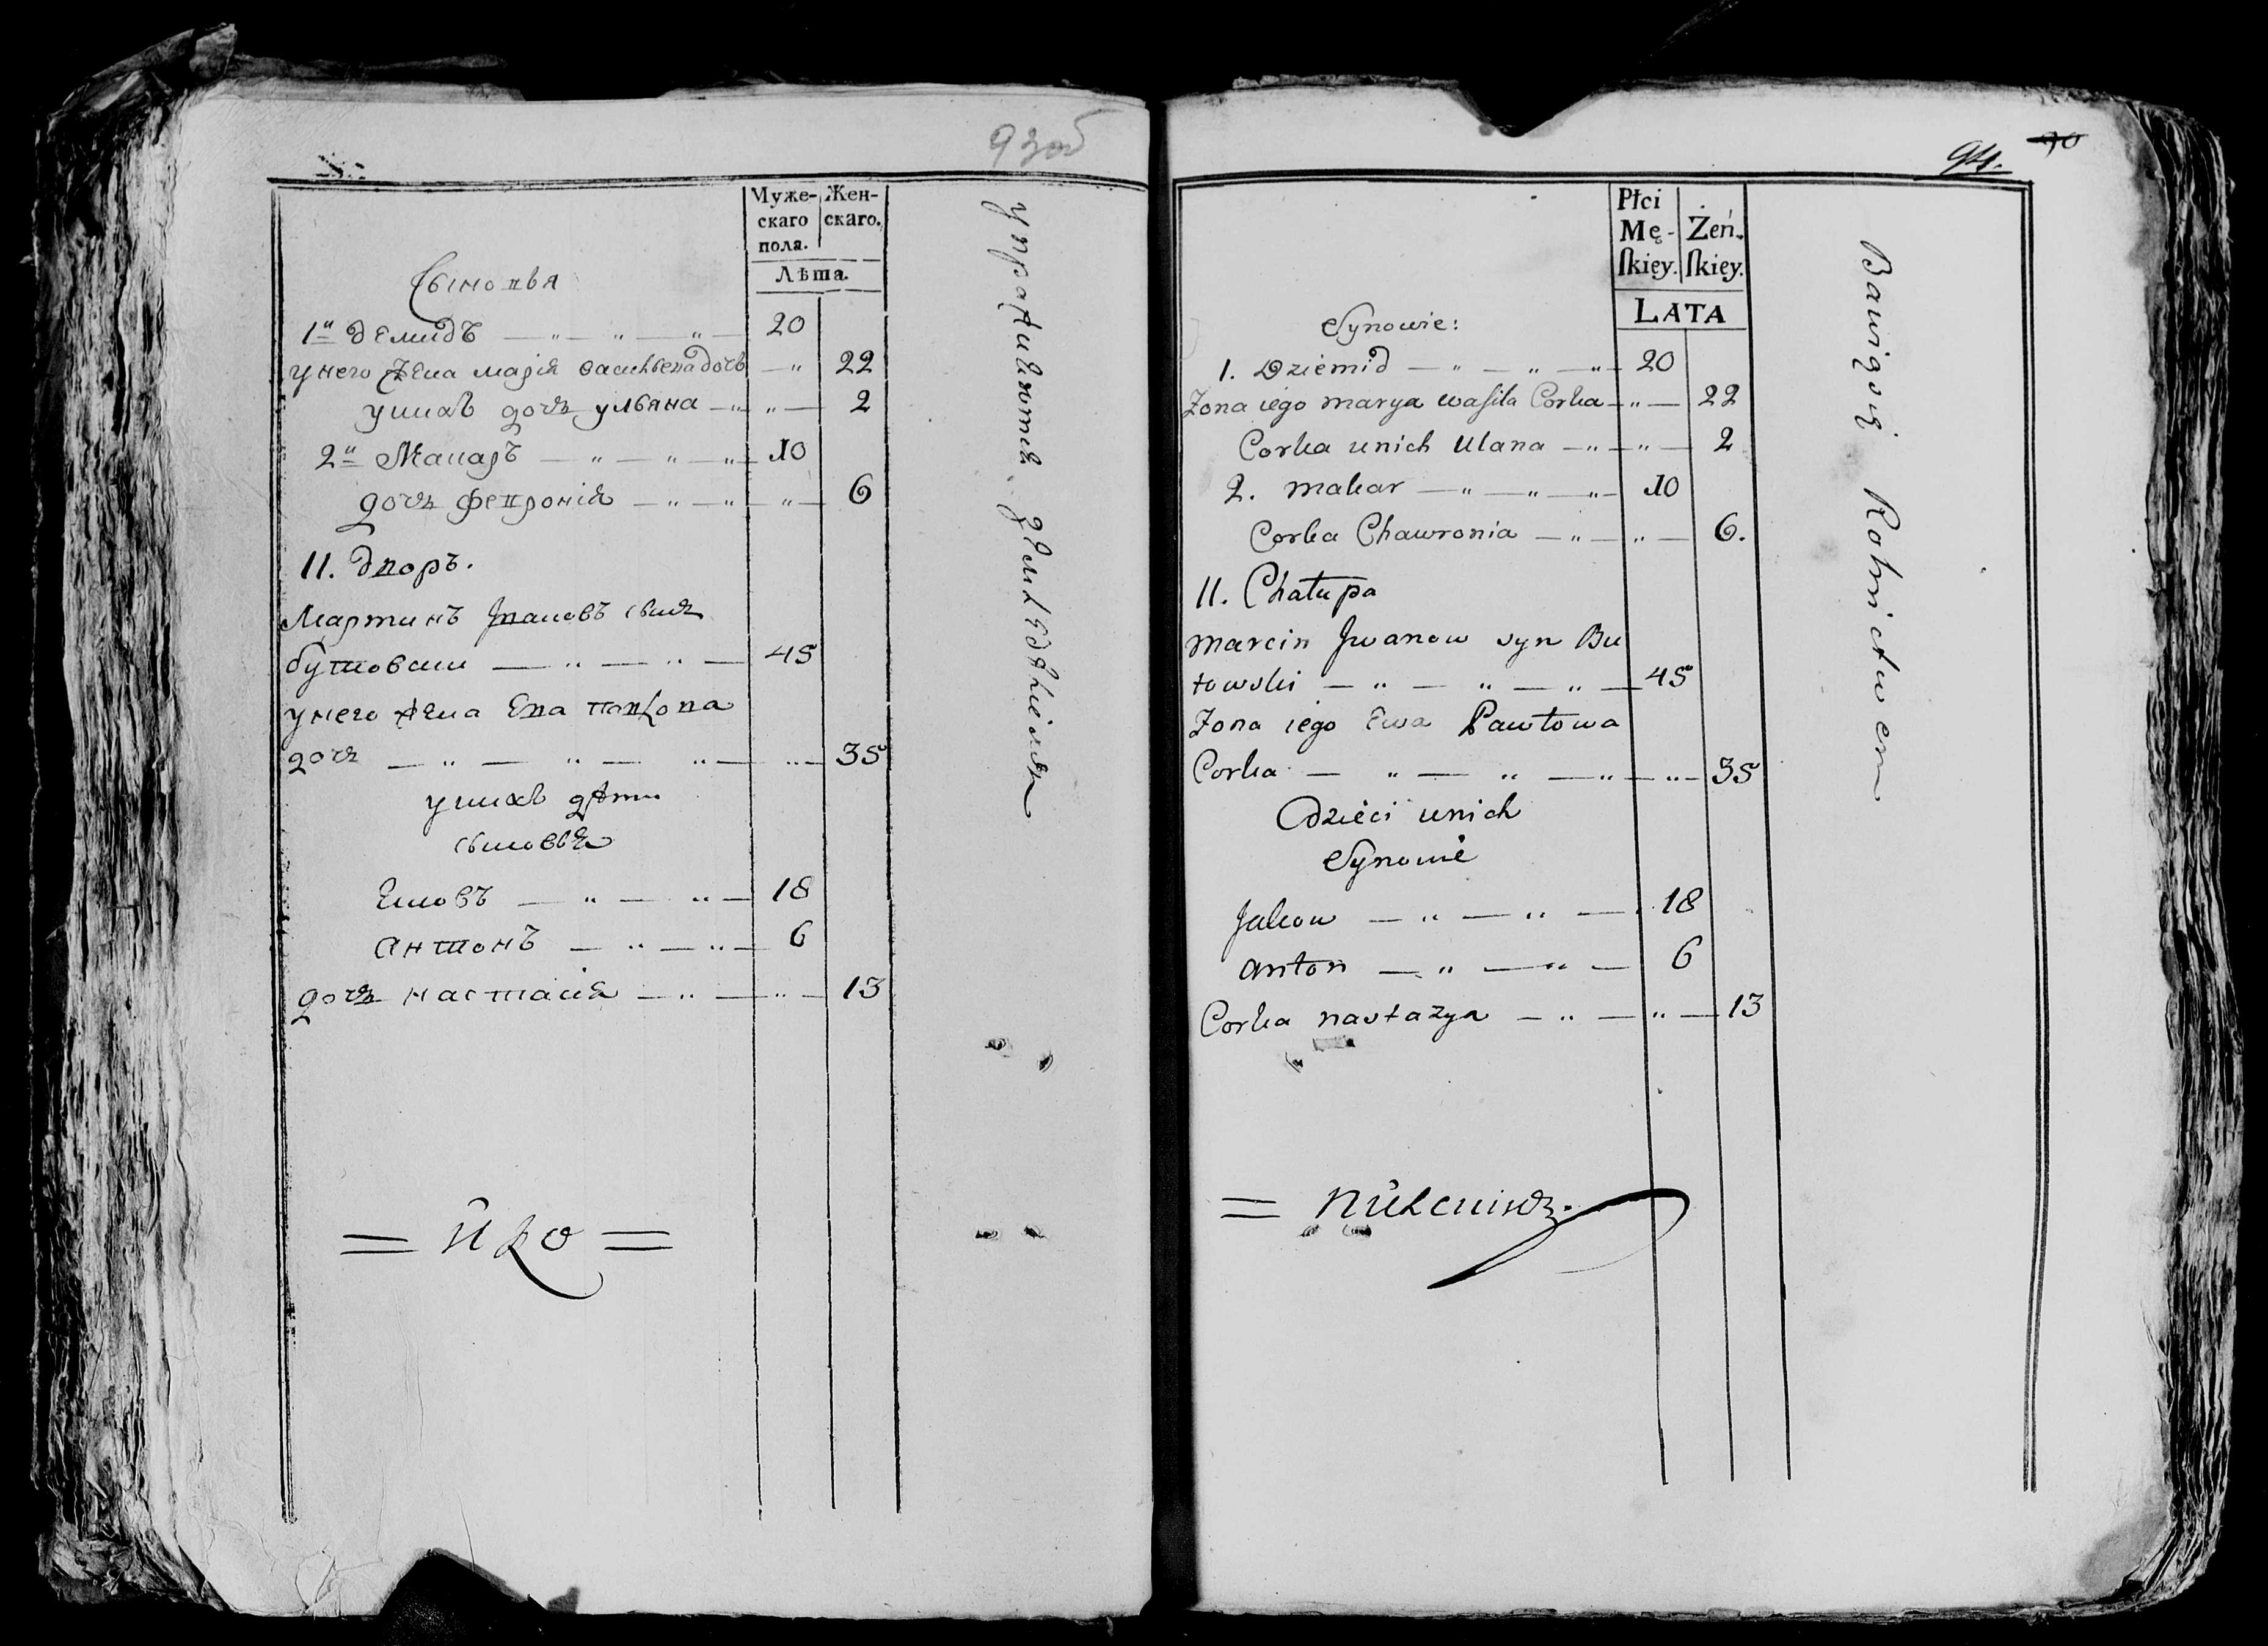 93об
Муже-
скаго
пола.
Жен-
скаго.
Лѣта.
Сыновья
1й Демидъ — " — " — " — 20
у него жена марія васильева дочь — " 22
у них дочь ульяна — " — " — 2
2й Макаръ — " — " — " — 10
дочь февронія — " — " — " — 6
11. Дворъ.
Мартинъ Ивановъ сынъ
бутовски — " — " — 45
у него жена Ева павлова
дочь — " — " — " — " — 35
у них дѣти
сыновья
Яковъ — " — " — 18
Антонъ — " — " — 6
дочь настасія — " — " — 13
упражняются земледѣлием
94. 90
Płci
Mę-
ſkiey.
Żeń-
ſkiey.
LATA
Synowie:
1. Dziemid — " — " — " — 20
Zona iego marya wasila Corka — " — 22
Corka unich Ulana — " — " — 2
2. makar — " — " — " — 10
Corka Chawronia — " — " — 6.
11. Chałupa
Marcin Jwanow syn Bu
towski — " — " — " — 45
Zona iego Ewa Pawłowa
Corka — " — " — " — " — 35
Dzieci unich
Synowie
Jakow — " — " — 18
anton — " — " — 6
Corka nastazya — " — " — 13
Bawiąsię Rolnictwem